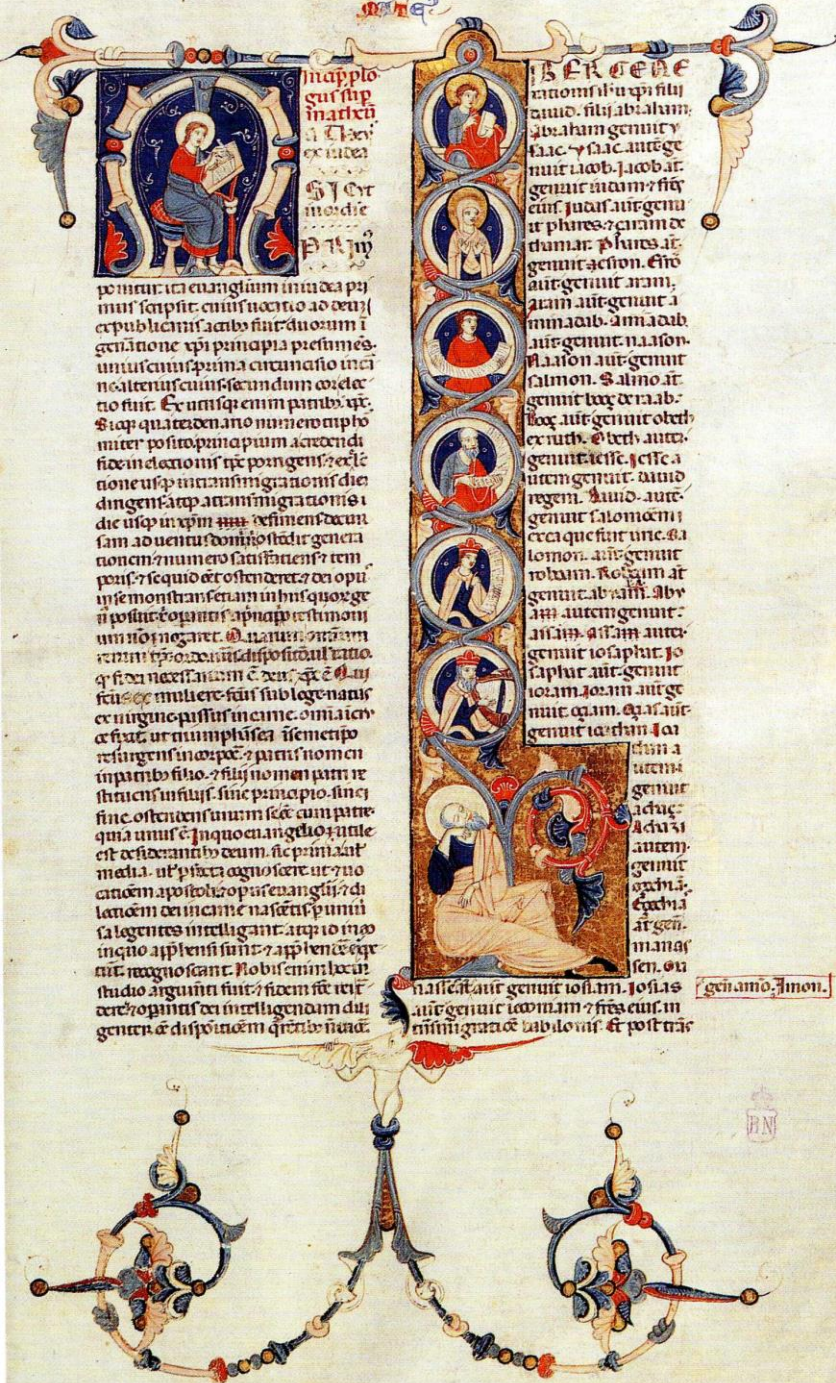 Incip plo
gus sup
matheū
SICUT
in ordīe
PRIM
ponitur ita euangelium in iudea pri
mus scripsit. cuius uocatio ad deum
ex publicanis actibꝫ fuit. duorum ī
generatione xp̄i principia presumēs.
unius cuius prima circuncisio in car
ne. alterius cuius secundum cor elec
tio fuit. Ex utrisqꝫ enim patribꝫ xp̄c.
fide in electionis
tione usqꝫ in transmigrationis diem
dirigens. atqꝫ a transmigrationis
die usqꝫ in xp̄m
sam aduentus domini ostēdit genera
tionem. ⁊ numero satisfaciens ⁊ tem
pori. ⁊ se quid eēt ostenderet. ⁊ dei opus
in se monstrans etiam in his quorum ge
testimoni
um nō negaret.
feūs ex muliere. feūs sub lege. natus
ex uirgine. passus in carne. omīa ī cru
ce ut triumphās ea ī semetipo
resurgens in corpore. ⁊ patris nomen
in patribꝫ filio. ⁊ filii nomen patri re
stituens in filiis. sine principio. sine
fine. ostendens unum se cum patre.
quia unus ē. In quo euangelio utile
est desiderantibꝫ deum. sic prima uł
media. uł perfecta cognoscere. ut ⁊ uo
cationem apostoli ⁊ opus euangelii. ⁊ di
lectionem dei in carne nascētis p uniū
sa legentes intelligant. atqꝫ id in eo
in quo apphensi sunt. ⁊ apphendere expe
tunt. recognoscant. Nobis enim hoc in
studio argumēti fuit. ⁊ fidem
dere. ⁊ operantis dei intelligendam dili
genter eē dispositionem querētibꝫ nō tacere
LIBER GENE
rationis ihu xpi filii
dauid. filii abraham.
Abraham genuit y
saac. ysaac aute ge
nuit iacob. Iacob at
genuit iudam ⁊ frēs
eius. Iudas aut genu
it phares ⁊ zaram de
thamar. Phares at
genuit esrom. Esrō
aut genuit aram.
Aram aut genuit a
minadab. Aminadab
aut genuit naason.
Naason aut genuit
salmon. Salmō at
genuit booz de raab.
Booz aut genuit obeth
ex ruth. Obeth aute
genuit iesse. Iesse a
utem genuit dauid
regem. Dauid aute
genuit salomonem
ex ea que fuit urie. Sa
lomon aut genuit
roboam. Roboam at
genuit abiam. Aby
am autem genuit
assam. Assam aute
genuit iosaphat. Io
saphat aut genuit
ioram. Ioram aut ge
nuit oziam. Ozias aut
genuit ioathan. Ioa
than a
utem
genuit
achaz.
Achaz
autem
genuit
ezechiā.
Ezechia
at gen.
manas
sen.
nasses aut genuit iosiam. Iosias
aut genuit ieconiam ⁊ frēs eius. in
trāsmigratiōe babilonis. Et post trās
gen amō. Amon.
BN